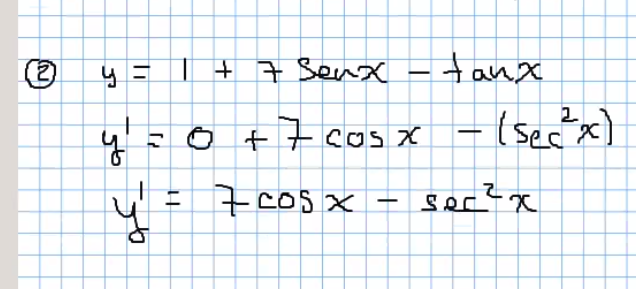 ② y = 1 + 7 Senx - tanx
y' = 0 + 7 cos x - (sec²x)
y' = 7 cos x - sec²x